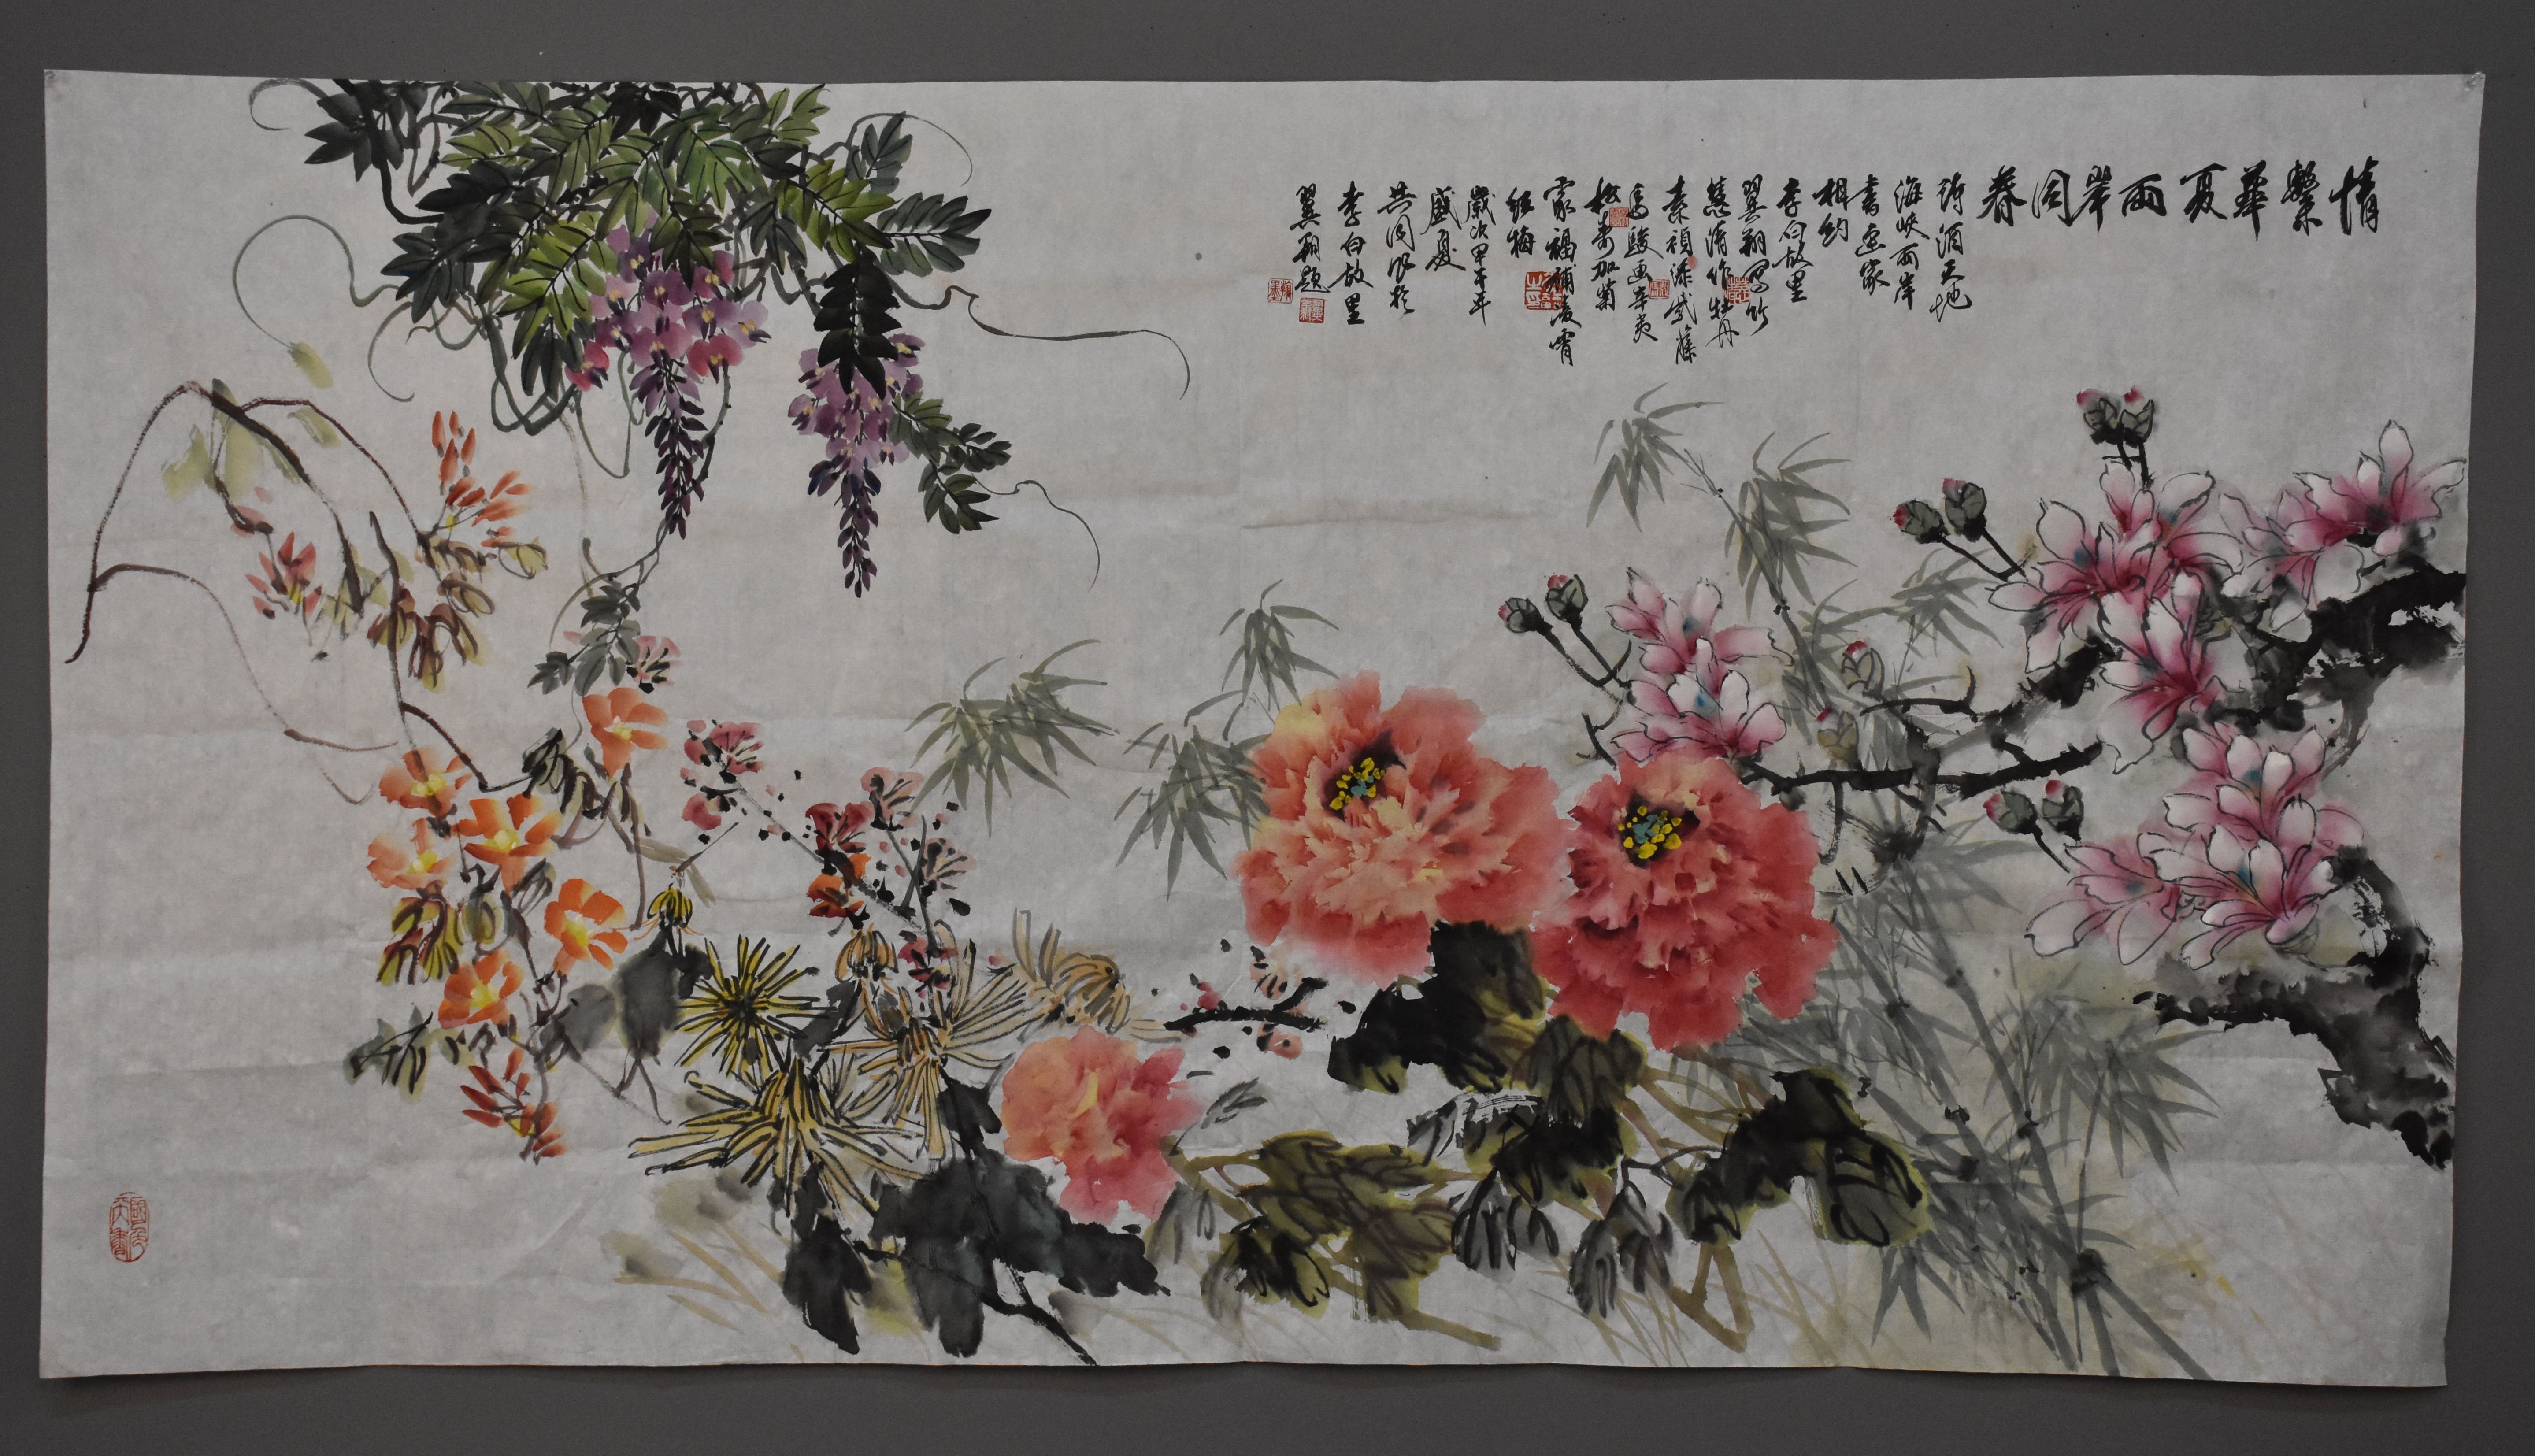 情繫華夏兩岸同春
詩酒天地
海峽兩岸
書畫家
相約
李白故里
翼翔寫竹
慧清作牡丹
素禎添紫藤
馬駿画辛夷
壽加菊
家福補凌霄
红梅
歲次甲午年
盛夏
共同作於
李白故里
翼翔題